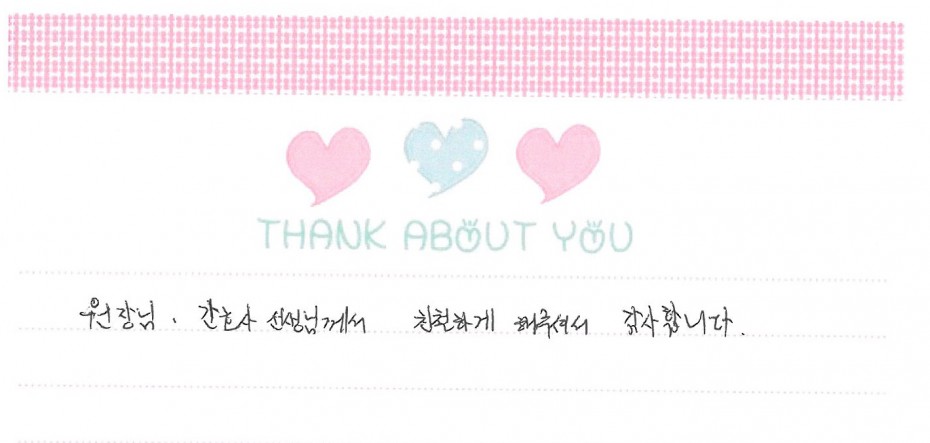 THANK ABOUT YOU
원장님, 간호사 선생님께서 친절하게 해주셔서 감사합니다.